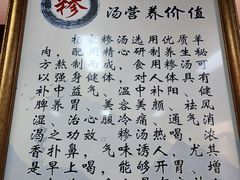 糁
汤营养价值
糁汤选用优质羊
肉,配用精心研制养生秘
方熬制而成,食用糁汤
可以强身健体,对人体具有
补中益气、温中补阳、健
脾养胃、美容美颜、祛风
湿、治心腹冷痛、通气消
渴之功效。糁汤热喝,浓
香扑鼻,气味诱人,尤其
是早上喝,能够开胃、增